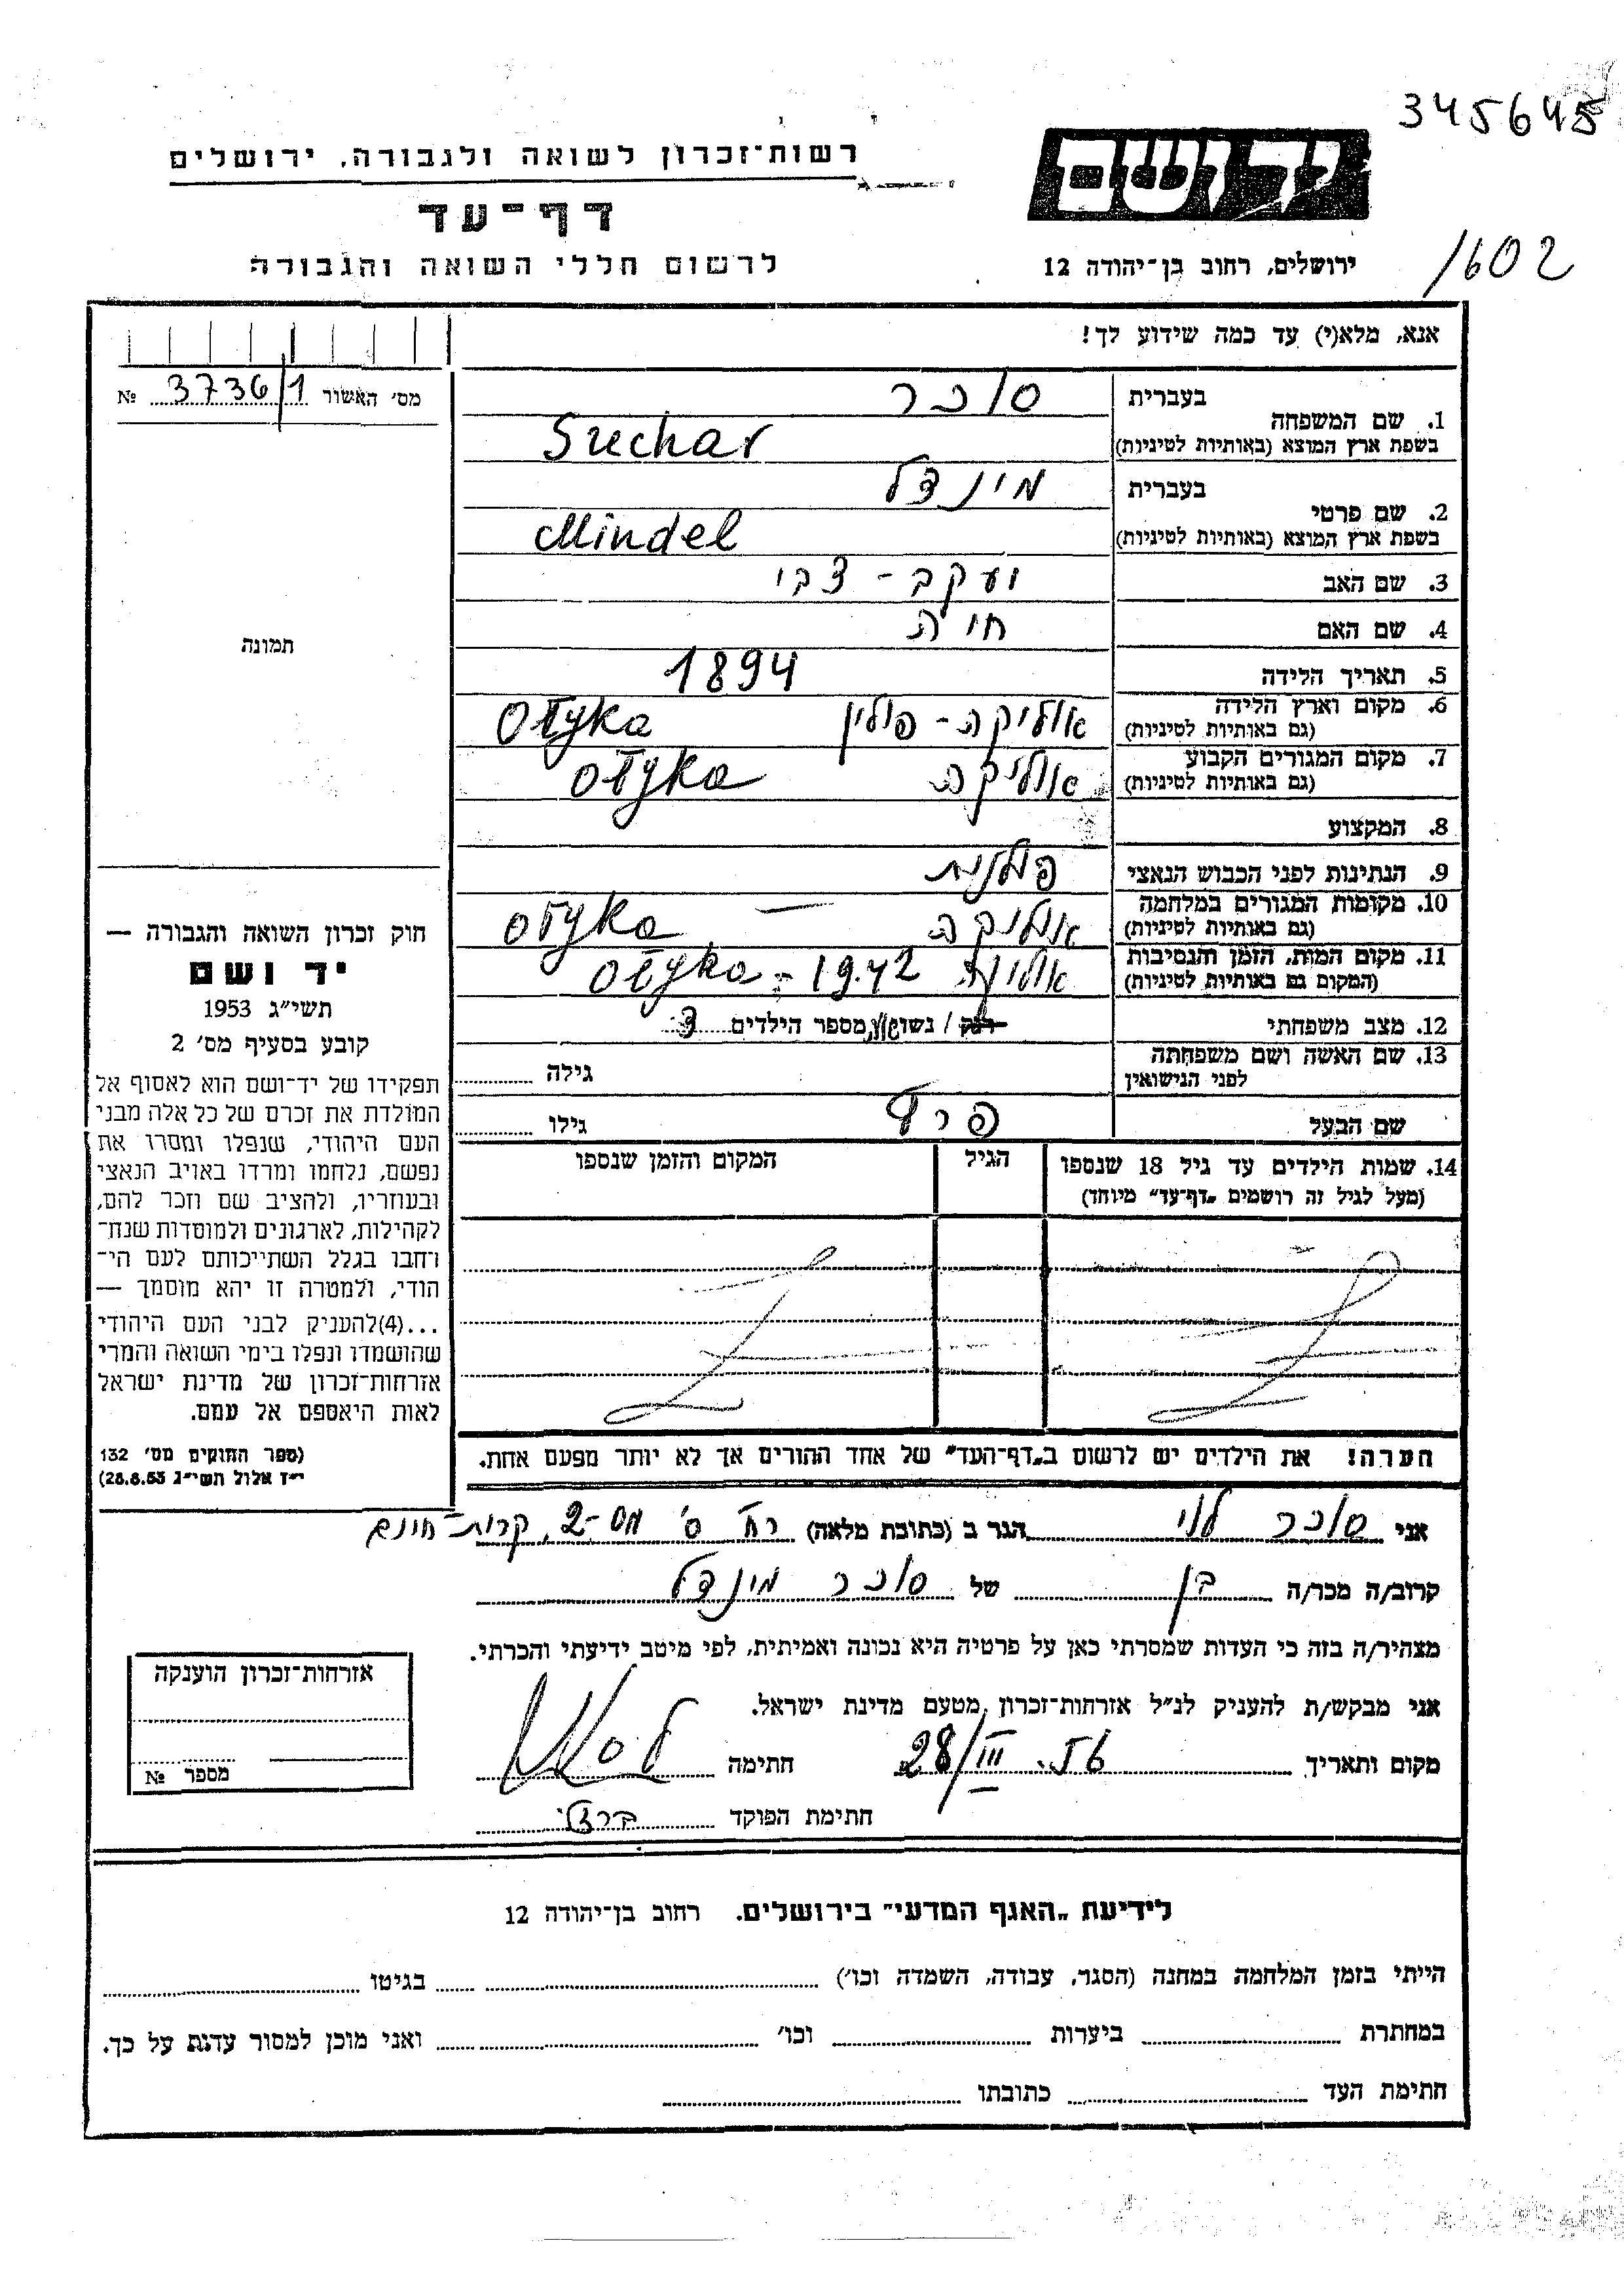 345645
רשות־זכרון לשואה ולגבורה, ירושלים
יד ושם
דף־עד
1602
לרשום חללי השואה והגבורה
ירושלים, רחוב בן־יהודה 12
אנא, מלא(י) עד כמה שידוע לך!
מס' האשור 3736/1 №
1. שם המשפחה
בעברית סוכר
בשפת ארץ המוצא (באותיות לטיניות) Suchar
2. שם פרטי
בעברית מינדל
בשפת ארץ המוצא (באותיות לטיניות) Mindel
3. שם האב יעקב - צבי
4. שם האם חיה
5. תאריך הלידה 1894
6. מקום וארץ הלידה (גם באותיות לטיניות) אוליקה - פולין Ołyka
7. מקום המגורים הקבוע (גם באותיות לטיניות) אוליקה Ołyka
8. המקצוע
9. הנתינות לפני הכבוש הנאצי פולנית
10. מקומות המגורים במלחמה (גם באותיות לטיניות) אוליקה Ołyka
11. מקום המות, הזמן והנסיבות (המקום גם באותיות לטיניות) אוליקה Ołyka - 1942
12. מצב משפחתי רוק / נשוי מספר הילדים 3
13. שם האשה ושם משפחתה לפני הנישואין
גילה
שם הבעל
גילו
14. שמות הילדים עד גיל 18 שנספו
(מעל לגיל זה רושמים "דף־עד" מיוחד)
הגיל
המקום והזמן שנספו
הערה! את הילדים יש לרשום ב"דף־העד" של אחד ההורים אך לא יותר מפעם אחת.
תמונה
חוק זכרון השואה והגבורה —
יד ושם
תשי"ג 1953
קובע בסעיף מס' 2
תפקידו של יד־ושם הוא לאסוף אל
המולדת את זכרם של כל אלה מבני
העם היהודי, שנפלו ומסרו את
נפשם, נלחמו ומרדו באויב הנאצי
ובעוזריו, ולהציב שם וזכר להם,
לקהילות, לארגונים ולמוסדות שנח־
רחבו בגלל השתייכותם לעם הי־
הודי, ולמטרה זו יהא מוסמך —
...(4) להעניק לבני העם היהודי
שהושמדו ונפלו בימי השואה והמרי
אזרחות־זכרון של מדינת ישראל
לאות היאספם אל עמם.
(ספר החוקים מס' 132
י"ז אלול תשי"ג 28.8.53)
אני סוכר לוי הגר ב (כתובת מלאה) קרית-חיים
קרוב/ה מכר/ה בן של סוכר מינדל
מצהיר/ה בזה כי העדות שמסרתי כאן על פרטיה היא נכונה ואמיתית, לפי מיטב ידיעתי והכרתי.
אני מבקש/ת להעניק לנ"ל אזרחות־זכרון מטעם מדינת ישראל.
מקום ותאריך 28/III.56 חתימה
חתימת הפוקד
אזרחות־זכרון הוענקה
מספר №
לידיעת "האגף המדעי" בירושלים. רחוב בן־יהודה 12
הייתי בזמן המלחמה במחנה (הסגר, עבודה, השמדה וכו') בגיטו
במחתרת ביערות וכו' ואני מוכן למסור עדות על כך.
חתימת העד כתובתו